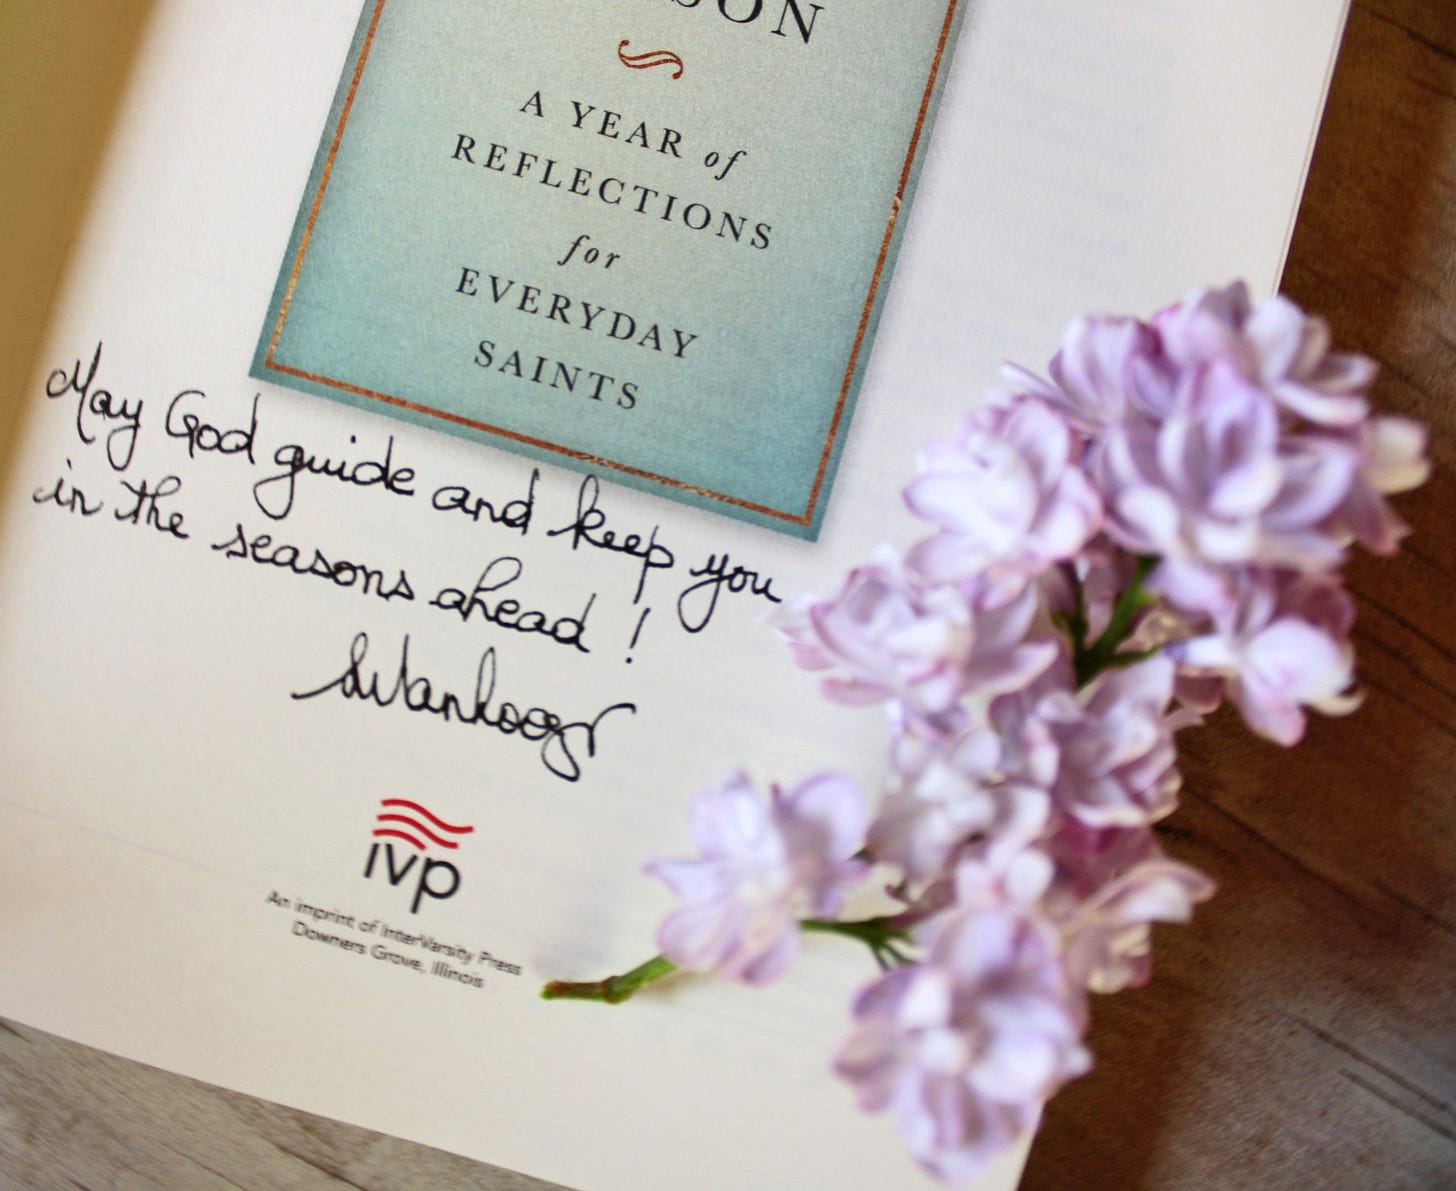 A YEAR of
REFLECTIONS
for
EVERYDAY
SAINTS
May God guide and keep you
in the seasons ahead!
ivp
An imprint of InterVarsity Press
Downers Grove, Illinois